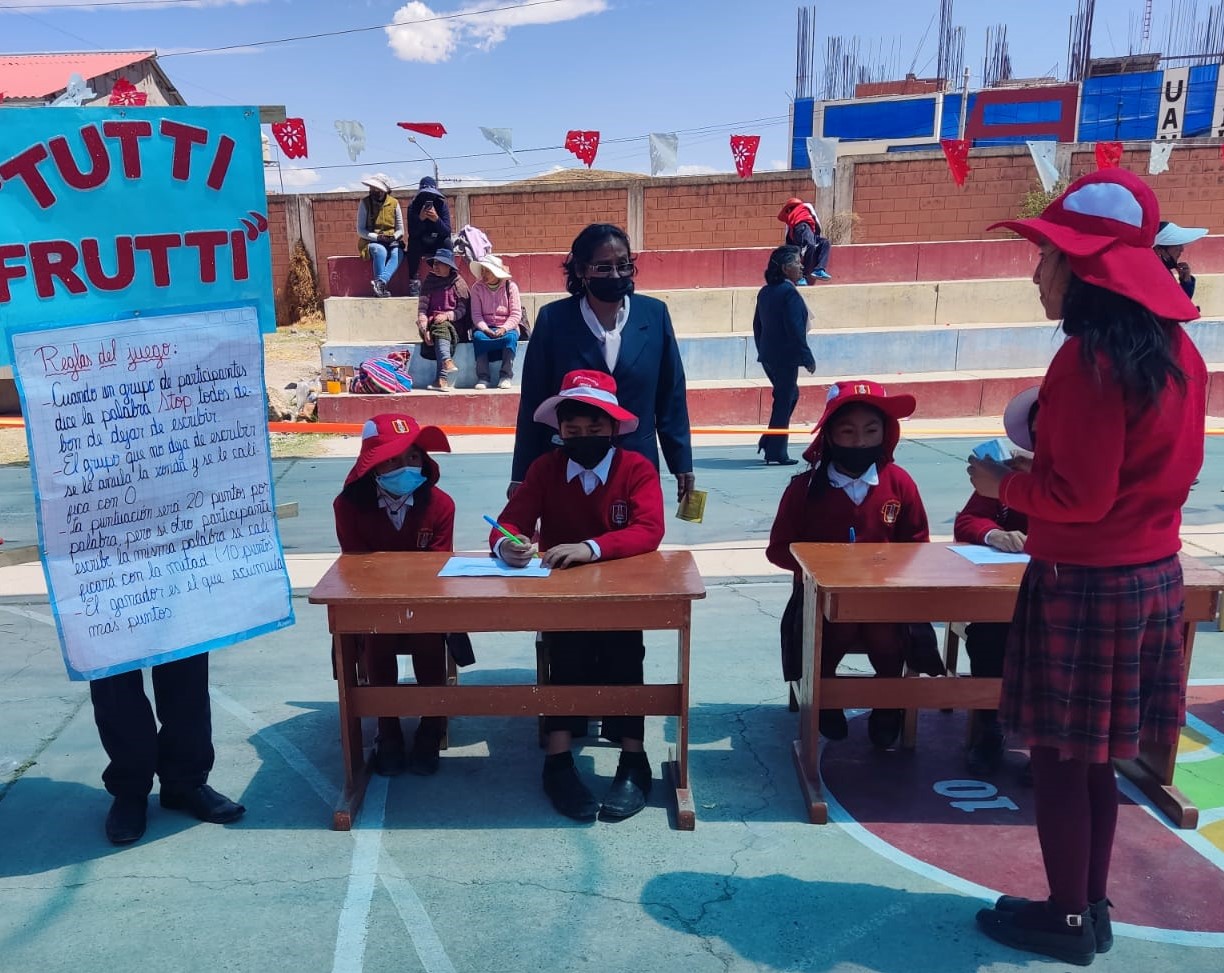 "TUTTI
FRUTTI"
Reglas del juego:
- Cuando un grupo de participantes
dice la palabra Stop todos de-
ben de dejar de escribir
- El grupo que no deja de escribir
se le anula la ronda y se le cali-
fica con 0
- la puntuación será 20 puntos por
palabra, pero si otro participante
escribe la misma palabra se cali
ficará con la mitad (10 puntos
- El ganador es el que acumula
mas puntos.
10